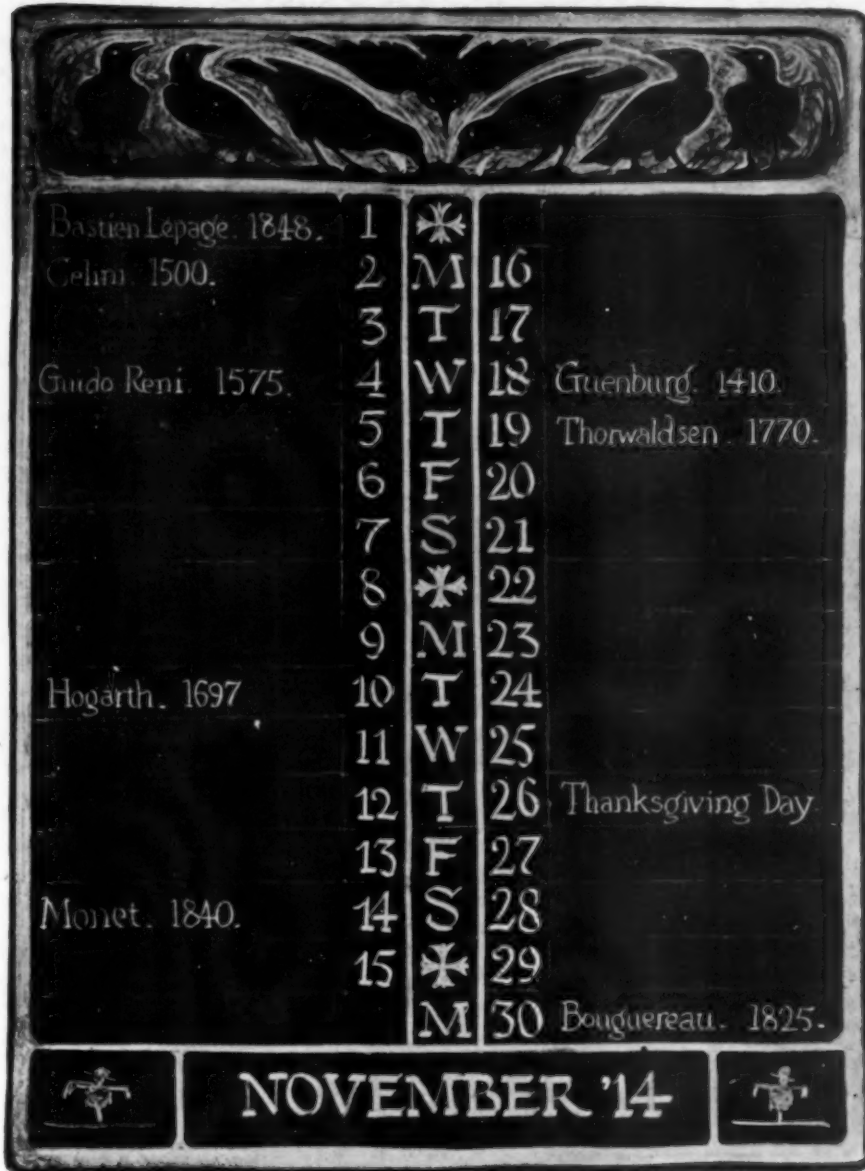 Bastien Lepage. 1848. 1 ✠
Celini. 1500. 2 M 16
3 T 17
Guido Reni. 1575. 4 W 18 Guenburg. 1410.
5 T 19 Thorwaldsen. 1770.
6 F 20
7 S 21
8 ✠ 22
9 M 23
Hogarth. 1697 10 T 24
11 W 25
12 T 26 Thanksgiving Day
13 F 27
Monet. 1840. 14 S 28
15 ✠ 29
M 30 Bouguereau. 1825.
NOVEMBER '14